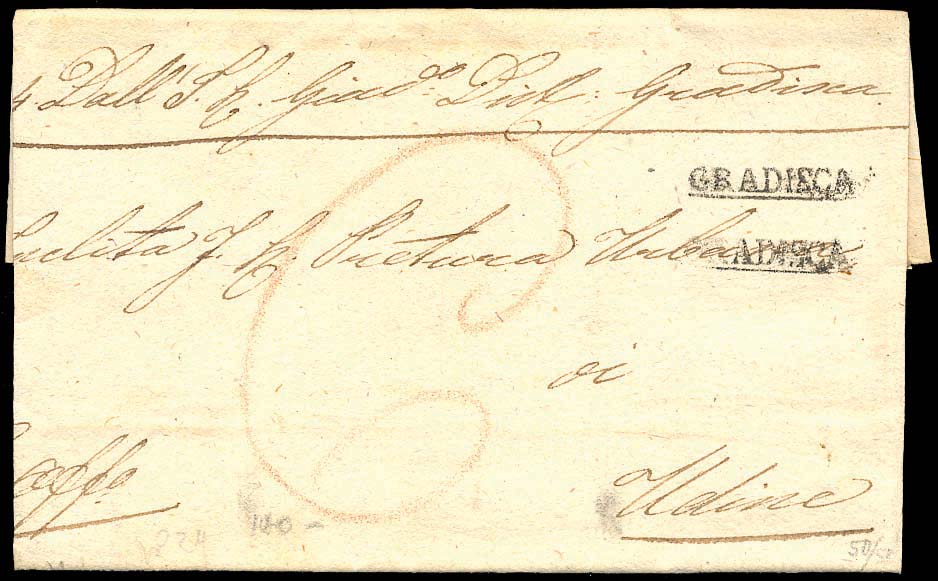 Dall' I. R. Giud.º Dist: Gradisca
GRADISCA
GRADISCA
Inclita I. R. Pretura Urbana
di
Udine
140 -
224
50/